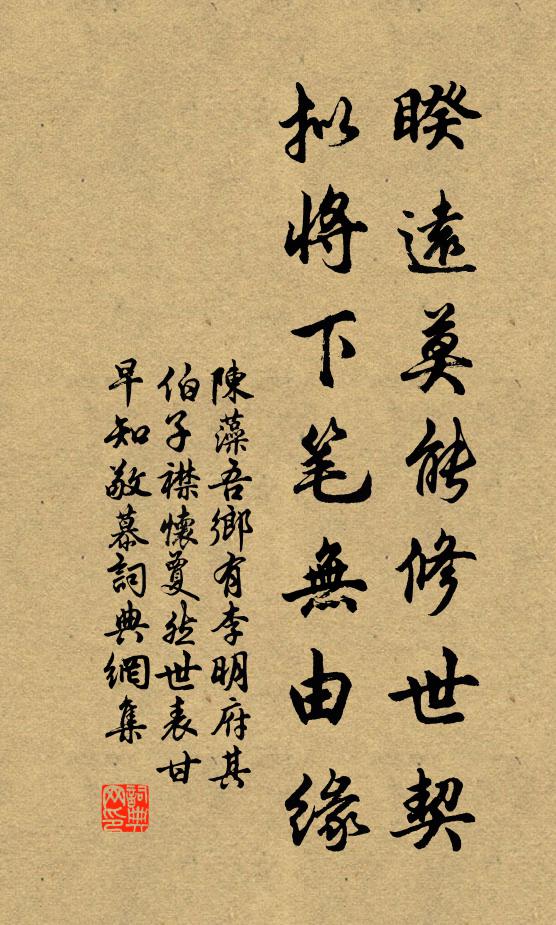 睽遠莫能修世契
拟將下笔無由緣
陳藻吾鄉有李明府其
伯子襟懷敻然世表甘
早知敬慕詞典網集
詞典
网印